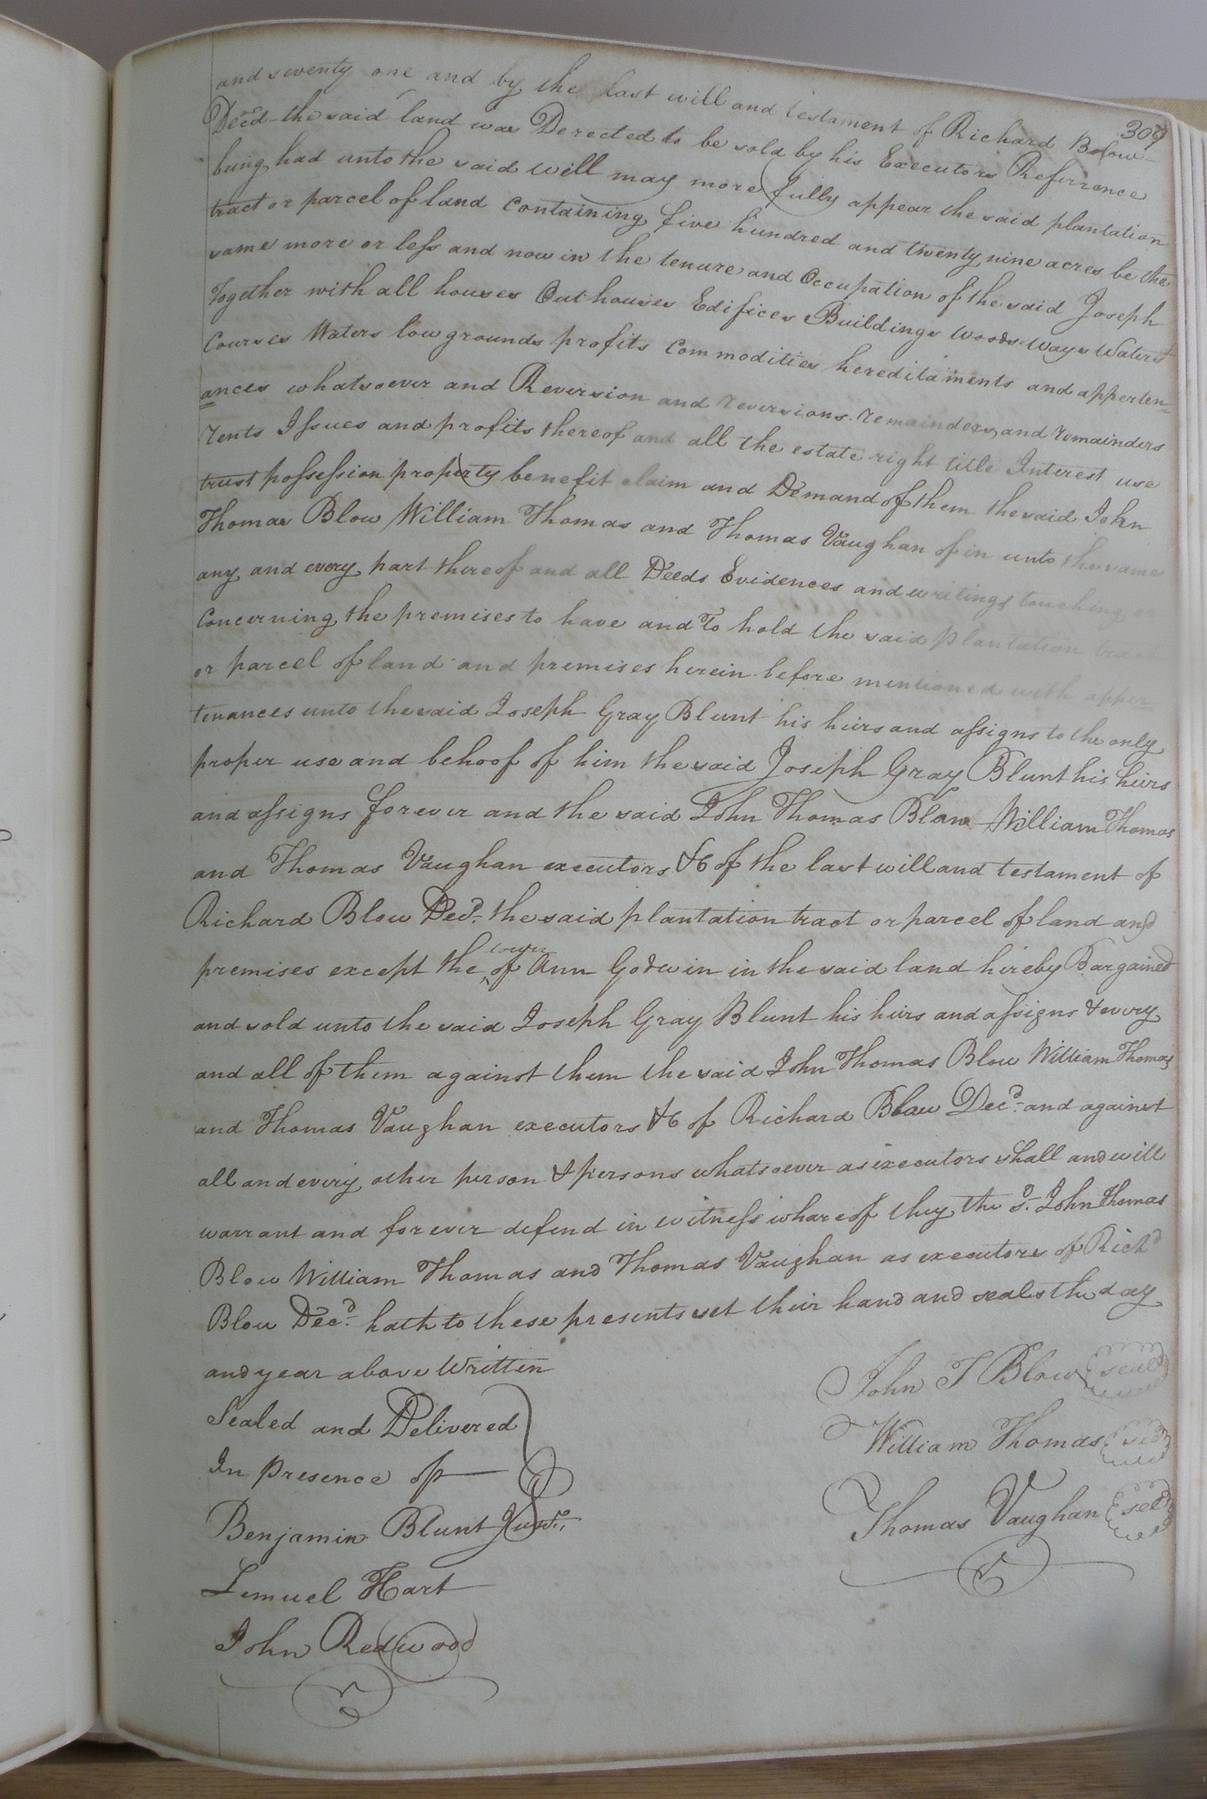 309
and seventy one and by the last will and testament of Richard Blow
Deced the said land was Derected to be sold by his Executors Referrence
being had unto the said will may more fully appear the said plantation
tract or parcel of land containing five hundred and twenty nine acres be the
same more or less and now in the tenure and Occupation of the said Joseph
Together with all houses Out houses Edifices Buildings woods ways Waters
Courses Waters low grounds profits Commodities hereditaments and apperten=
ances whatsoever and Reversion and reversions remainders and remainders
rents Issues and profits thereof and all the estate right title Interest use
trust possession property benefit claim and Demand of them the said John
Thomas Blow William Thomas and Thomas Vaughan of in unto the same
any and every part thereof and all Deeds Evidences and writings touching or
Concerning the premises to have and To hold the said plantation tract
or parcel of land and premises herein before mentioned with apper
tenances unto the said Joseph Gray Blunt his heirs and assigns to the only
proper use and behoof of him the said Joseph Gray Blunt his heirs
and assigns forever and the said John Thomas Blow William Thomas
and Thomas Vaughan executors &c of the last will and testament of
Richard Blow Decd. the said plantation tract or parcel of land and
premises except the of Ann Godwin in the said land hereby Bargained
and sold unto the said Joseph Gray Blunt his heirs and assigns & every
and all of them against them the said John Thomas Blow William Thomas
and Thomas Vaughan executors &c of Richard Blow Decd. and against
all and every other person & persons whatsoever as executors shall and will
warrant and forever defend in witness whareof they the sd. John Thomas
Blow William Thomas and Thomas Vaughan as executors of Richd
Blow Decd. hath to these presents set their hand and seals the day
and year above Written
Sealed and Delivered
In presence of
Benjamin Blunt Junr.
Lemuel Hart
John Redwood
John T Blow seal
William Thomas seal
Thomas Vaughan seal